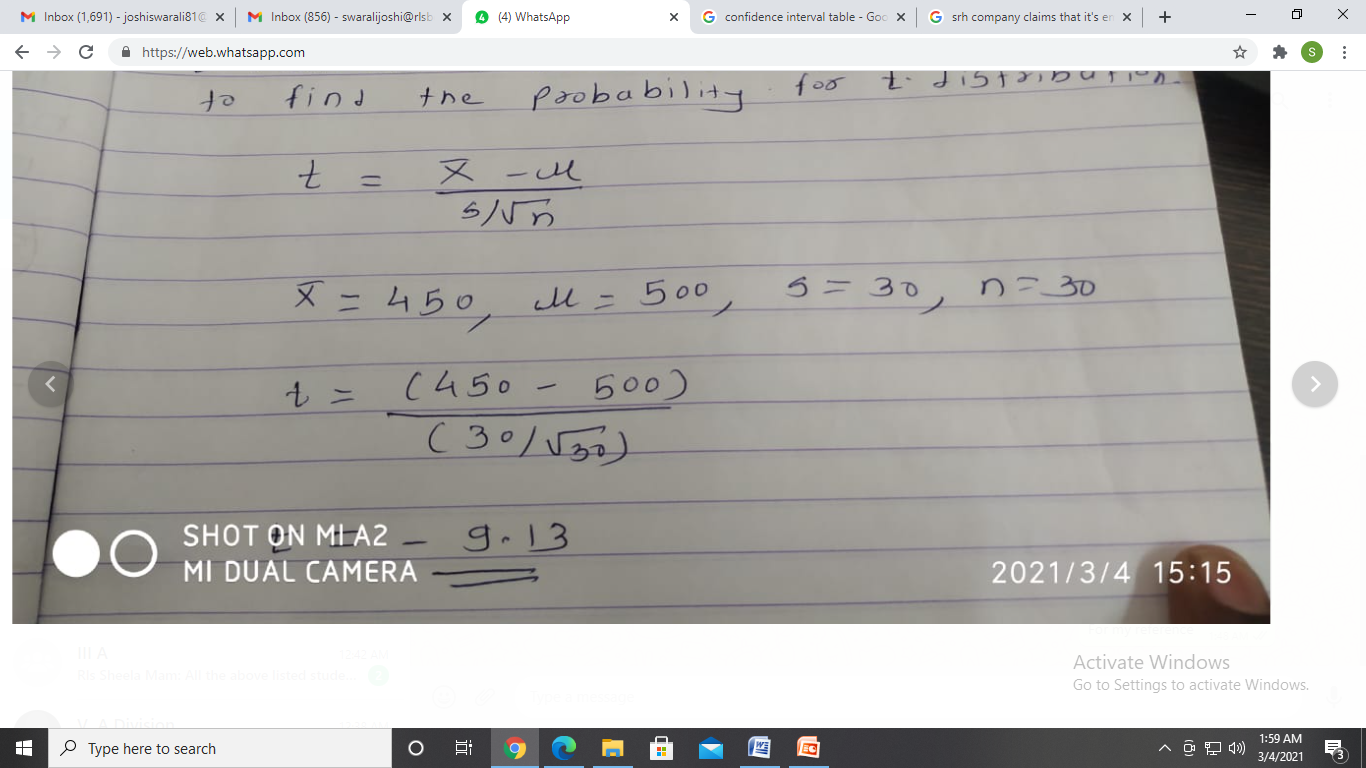 Inbox (1,691) - joshiswarali81@
Inbox (856) - swaralijoshi@rlsb
(4) WhatsApp
confidence interval table - Goo
srh company claims that it's en
https://web.whatsapp.com
S
to find the probability for t- distribution.
t = x̄ - μ
s/√n
x̄ = 450, μ = 500, s = 30, n = 30
t = (450 - 500)
(30/√30)
t = - 9.13
SHOT ON MI A2
MI DUAL CAMERA
2021/3/4 15:15
III A
12:42 AM
Rls Sheela Mam: All the above listed stude...
V A Division
Type a message
Activate Windows
Go to Settings to activate Windows.
Type here to search
1:59 AM
3/4/2021
3